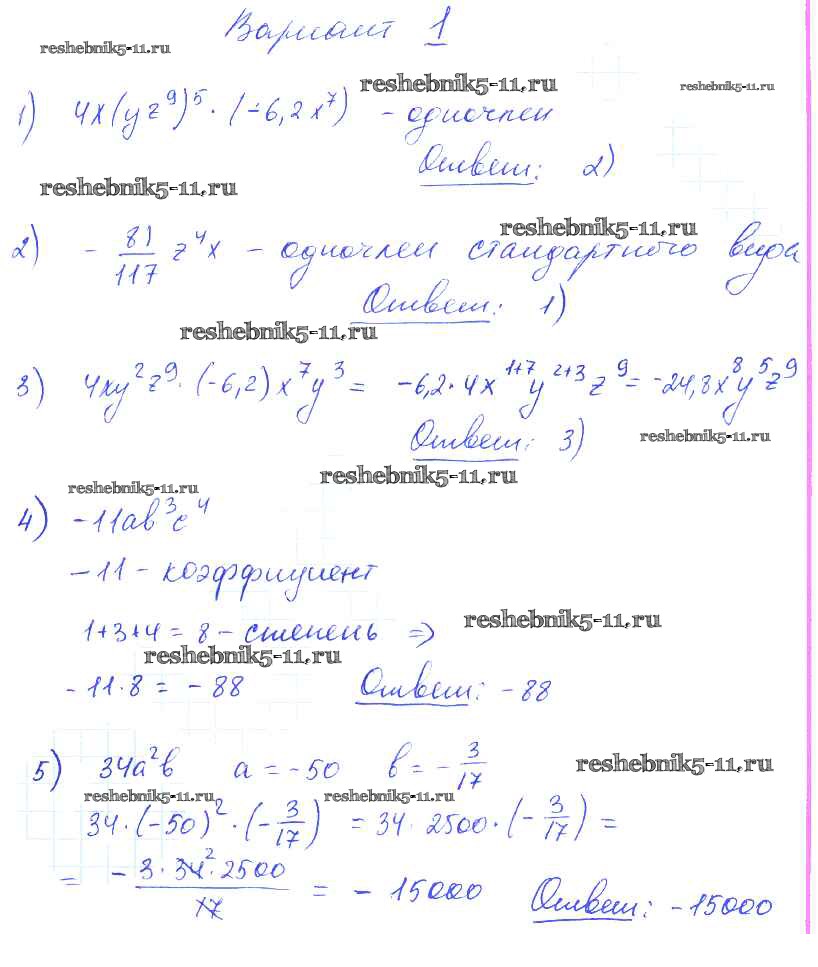 Вариант 1
reshebnik5-11.ru
reshebnik5-11.ru
reshebnik5-11.ru
1) 4x(yz⁹)⁵ · (-6,2x⁷) - одночлен
Ответ: 2)
reshebnik5-11.ru
reshebnik5-11.ru
2) - 81/117 z⁴x - одночлен стандартного вида
Ответ: 1)
reshebnik5-11.ru
3) 4xy²z⁹ · (-6,2)x⁷y³ = -6,2·4x¹⁺⁷y²⁺³z⁹ = -24,8x⁸y⁵z⁹
Ответ: 3)
reshebnik5-11.ru
reshebnik5-11.ru
reshebnik5-11.ru
4) -11ab³c⁴
-11 - коэффициент
1+3+4 = 8 - степень ⇒
reshebnik5-11.ru
reshebnik5-11.ru
-11·8 = -88 Ответ: -88
5) 34a²b a = -50 b = - 3/17
reshebnik5-11.ru
reshebnik5-11.ru
reshebnik5-11.ru
34·(-50)²·(- 3/17) = 34·2500·(- 3/17) =
= - 3·34²·2500/17 = -15000 Ответ: -15000